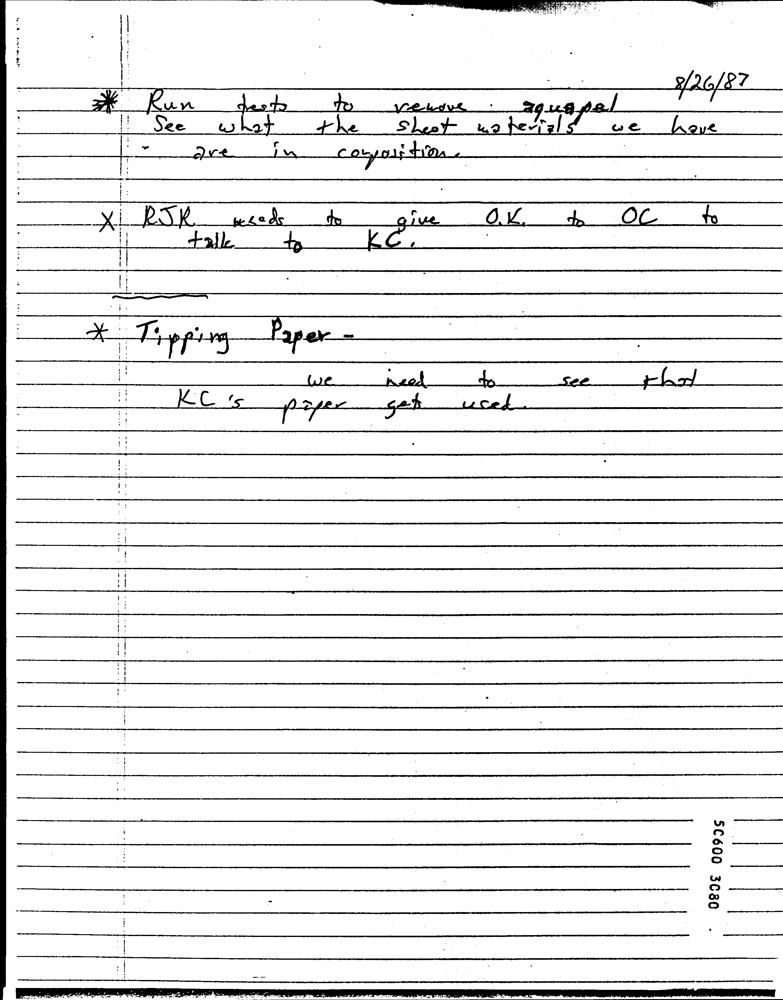 8/26/87
* Run tests to remove aquapel
See what the sheet materials we have
- are in composition.
X RJR needs to give O.K. to OC to
talk to KC.
* Tipping Paper -
we need to see that
KC's paper gets used.
50600 3080